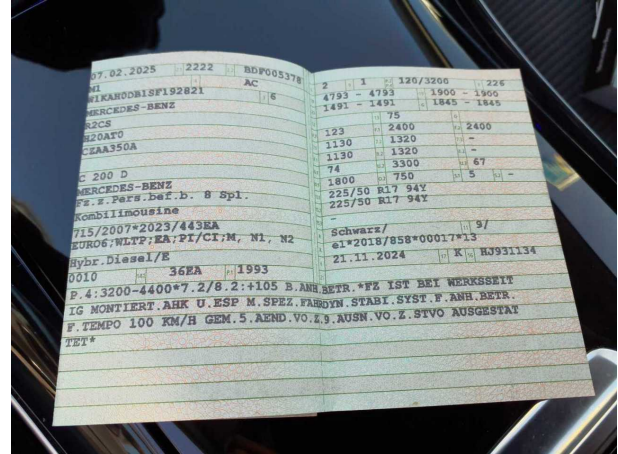 07.02.2025 2222 BDF005378
M1 AC
W1KAH0DB1SF192821 6
MERCEDES-BENZ
R2CS
H20AT0
CZAA350A
C 200 D
MERCEDES-BENZ
Fz.z.Pers.bef.b. 8 Spl.
Kombilimousine
715/2007*2023/443EA
EURO6;WLTP;EA;PI/CI;M, N1, N2
Hybr.Diesel/E
0010 36EA 1993
2 1 120/3200 226
4793 - 4793 1900 - 1900
1491 - 1491 1845 - 1845
75
123 2400 2400
1130 1320 -
1130 1320 -
74 3300 67
1800 750 5 -
225/50 R17 94Y
225/50 R17 94Y
-
Schwarz/ 9/
e1*2018/858*00017*13
21.11.2024 K HJ931134
P.4:3200-4400*7.2/8.2:+105 B.ANH.BETR.*FZ IST BEI WERKSSEIT
IG MONTIERT.AHK U.ESP M.SPEZ.FAHRDYN.STABI.SYST.F.ANH.BETR.
F.TEMPO 100 KM/H GEM.5.AEND.VO.Z.9.AUSN.VO.Z.STVO AUSGESTAT
TET*